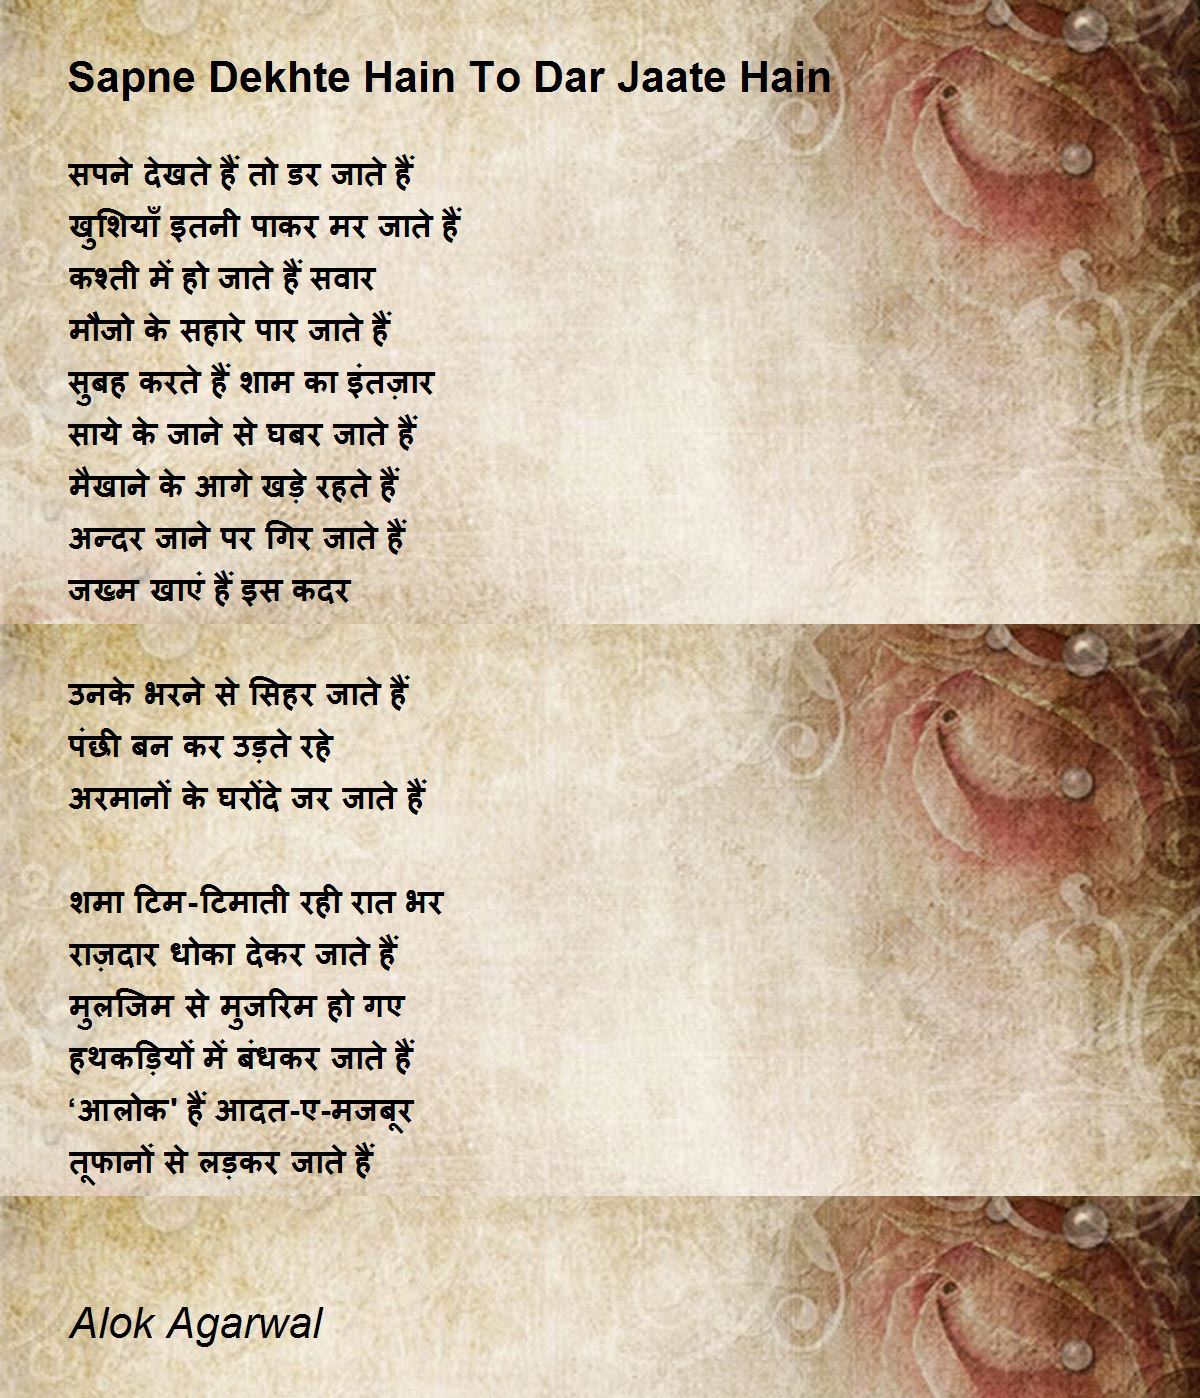 Sapne Dekhte Hain To Dar Jaate Hain
सपने देखते हैं तो डर जाते हैं
खुशियाँ इतनी पाकर मर जाते हैं
कश्ती में हो जाते हैं सवार
मौजो के सहारे पार जाते हैं
सुबह करते हैं शाम का इंतज़ार
साये के जाने से घबर जाते हैं
मैखाने के आगे खड़े रहते हैं
अन्दर जाने पर गिर जाते हैं
जख्म खाएं हैं इस कदर
उनके भरने से सिहर जाते हैं
पंछी बन कर उड़ते रहे
अरमानों के घरोंदे जर जाते हैं
शमा टिम-टिमाती रही रात भर
राज़दार धोका देकर जाते हैं
मुलजिम से मुजरिम हो गए
हथकड़ियों में बंधकर जाते हैं
‘आलोक' हैं आदत-ए-मजबूर
तूफानों से लड़कर जाते हैं
Alok Agarwal